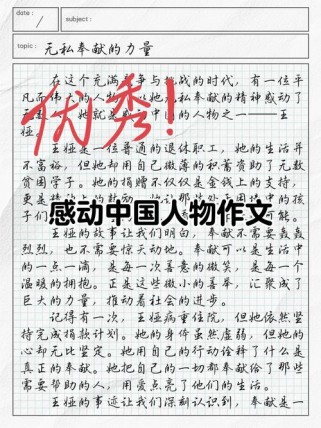 date:
subject:
topic: 无私奉献的力量
在这个充满竞争与挑战的时代，有一位平
凡而伟大的人物，以她无私奉献的精神感动了
王
娅。
优秀!
王娅是一位普通的退休职工，她的生活并
不富裕，但她却用自己微薄的积蓄资助了无数
贫困学子。她的捐赠不仅仅是金钱上的支持，
感动中国人物作文
王娅的故事让我们明白，奉献不需要轰轰
烈烈，也不需要惊天动地。奉献可以是生活中
的一点一滴，是每一次善意的微笑，是每一个
温暖的拥抱。正是这些微小的善举，汇聚成了
巨大的力量，推动着社会的进步。
记得有一次，王娅病重住院，但她依然坚
持完成捐款计划。她的身体虽然虚弱，但她的
心却无比坚定。她用自己的行动诠释了什么是
真正的奉献。她把自己的一切都奉献给了那些
需要帮助的人，用爱点亮了他们的生活。
王娅的事迹让我们深刻认识到，奉献是一